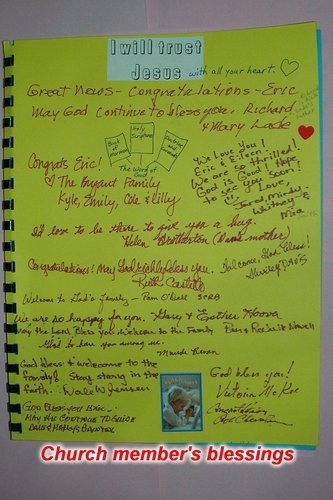 I will trust
Jesus with all your heart.
Great News - Congratulations - Eric
May God continue to bless you, Richard
& Mary Lade
Book of Mormon
Holy Scriptures
Doctrine and Covenants
The Word of God
Congrats Eric!
The Bryant Family
Kyle, Emily, Cole & Lilly
We love You!
Eric & E-Teen
We are so thrilled!
God is Good! Hope
to see you soon!
Love,
Jared, Mindy,
Whitney &
Mia
I'd love to be there to give you a hug.
Helen Brotherton (Dana's mother)
Congratulations! May God richly bless you.
Ruth Castillo
Welcome, God Bless!
Shirley
Welcome to God's family - Pam O'Dell
We are so happy for you. Gary & Esther Hoova
May the Lord Bless You Welcome to the Family
Glad to have you among us.
God bless & welcome to the
family! Stay strong in the
faith. Dale W.
God bless you!
Victoria McKee
Congratulations
God Bless You Eric -
May He continue to guide
Dale & 
Church member's blessings